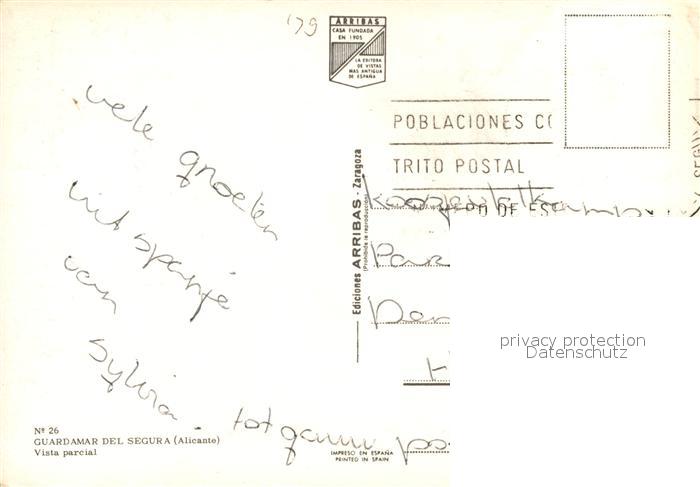 '79
ARRIBAS
CASA FUNDADA
EN 1905
LA EDITORA
DE VISTAS
MAS ANTIGUA
DE ESPAÑA
POBLACIONES CO
TRITO POSTAL
DE ES
vele groeten
uit spanje
van
Sylvia
Ediciones ARRIBAS - Zaragoza
(Prohibida la reproducción)
Par
Den
H
privacy protection
Datenschutz
Nº 26
GUARDAMAR DEL SEGURA (Alicante)
Vista parcial
IMPRESO EN ESPAÑA
PRINTED IN SPAIN